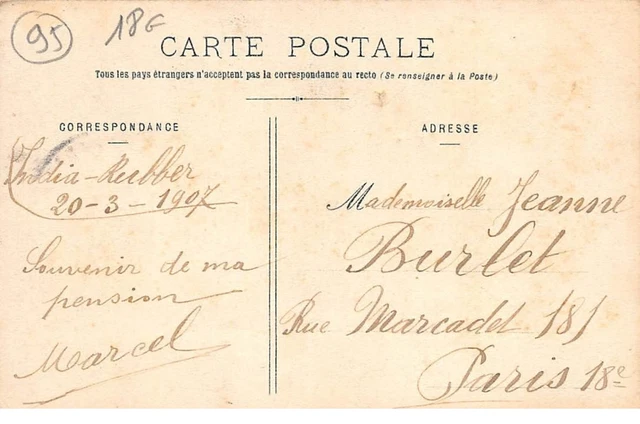 95 18€
CARTE POSTALE
Tous les pays étrangers n'acceptent pas la correspondance au recto (Se renseigner à la Poste)
CORRESPONDANCE
India-Rubber
20-3-1907
Souvenir de ma
pension
Marcel
ADRESSE
Mademoiselle Jeanne
Burlet
Rue Marcadet 181
Paris 18e